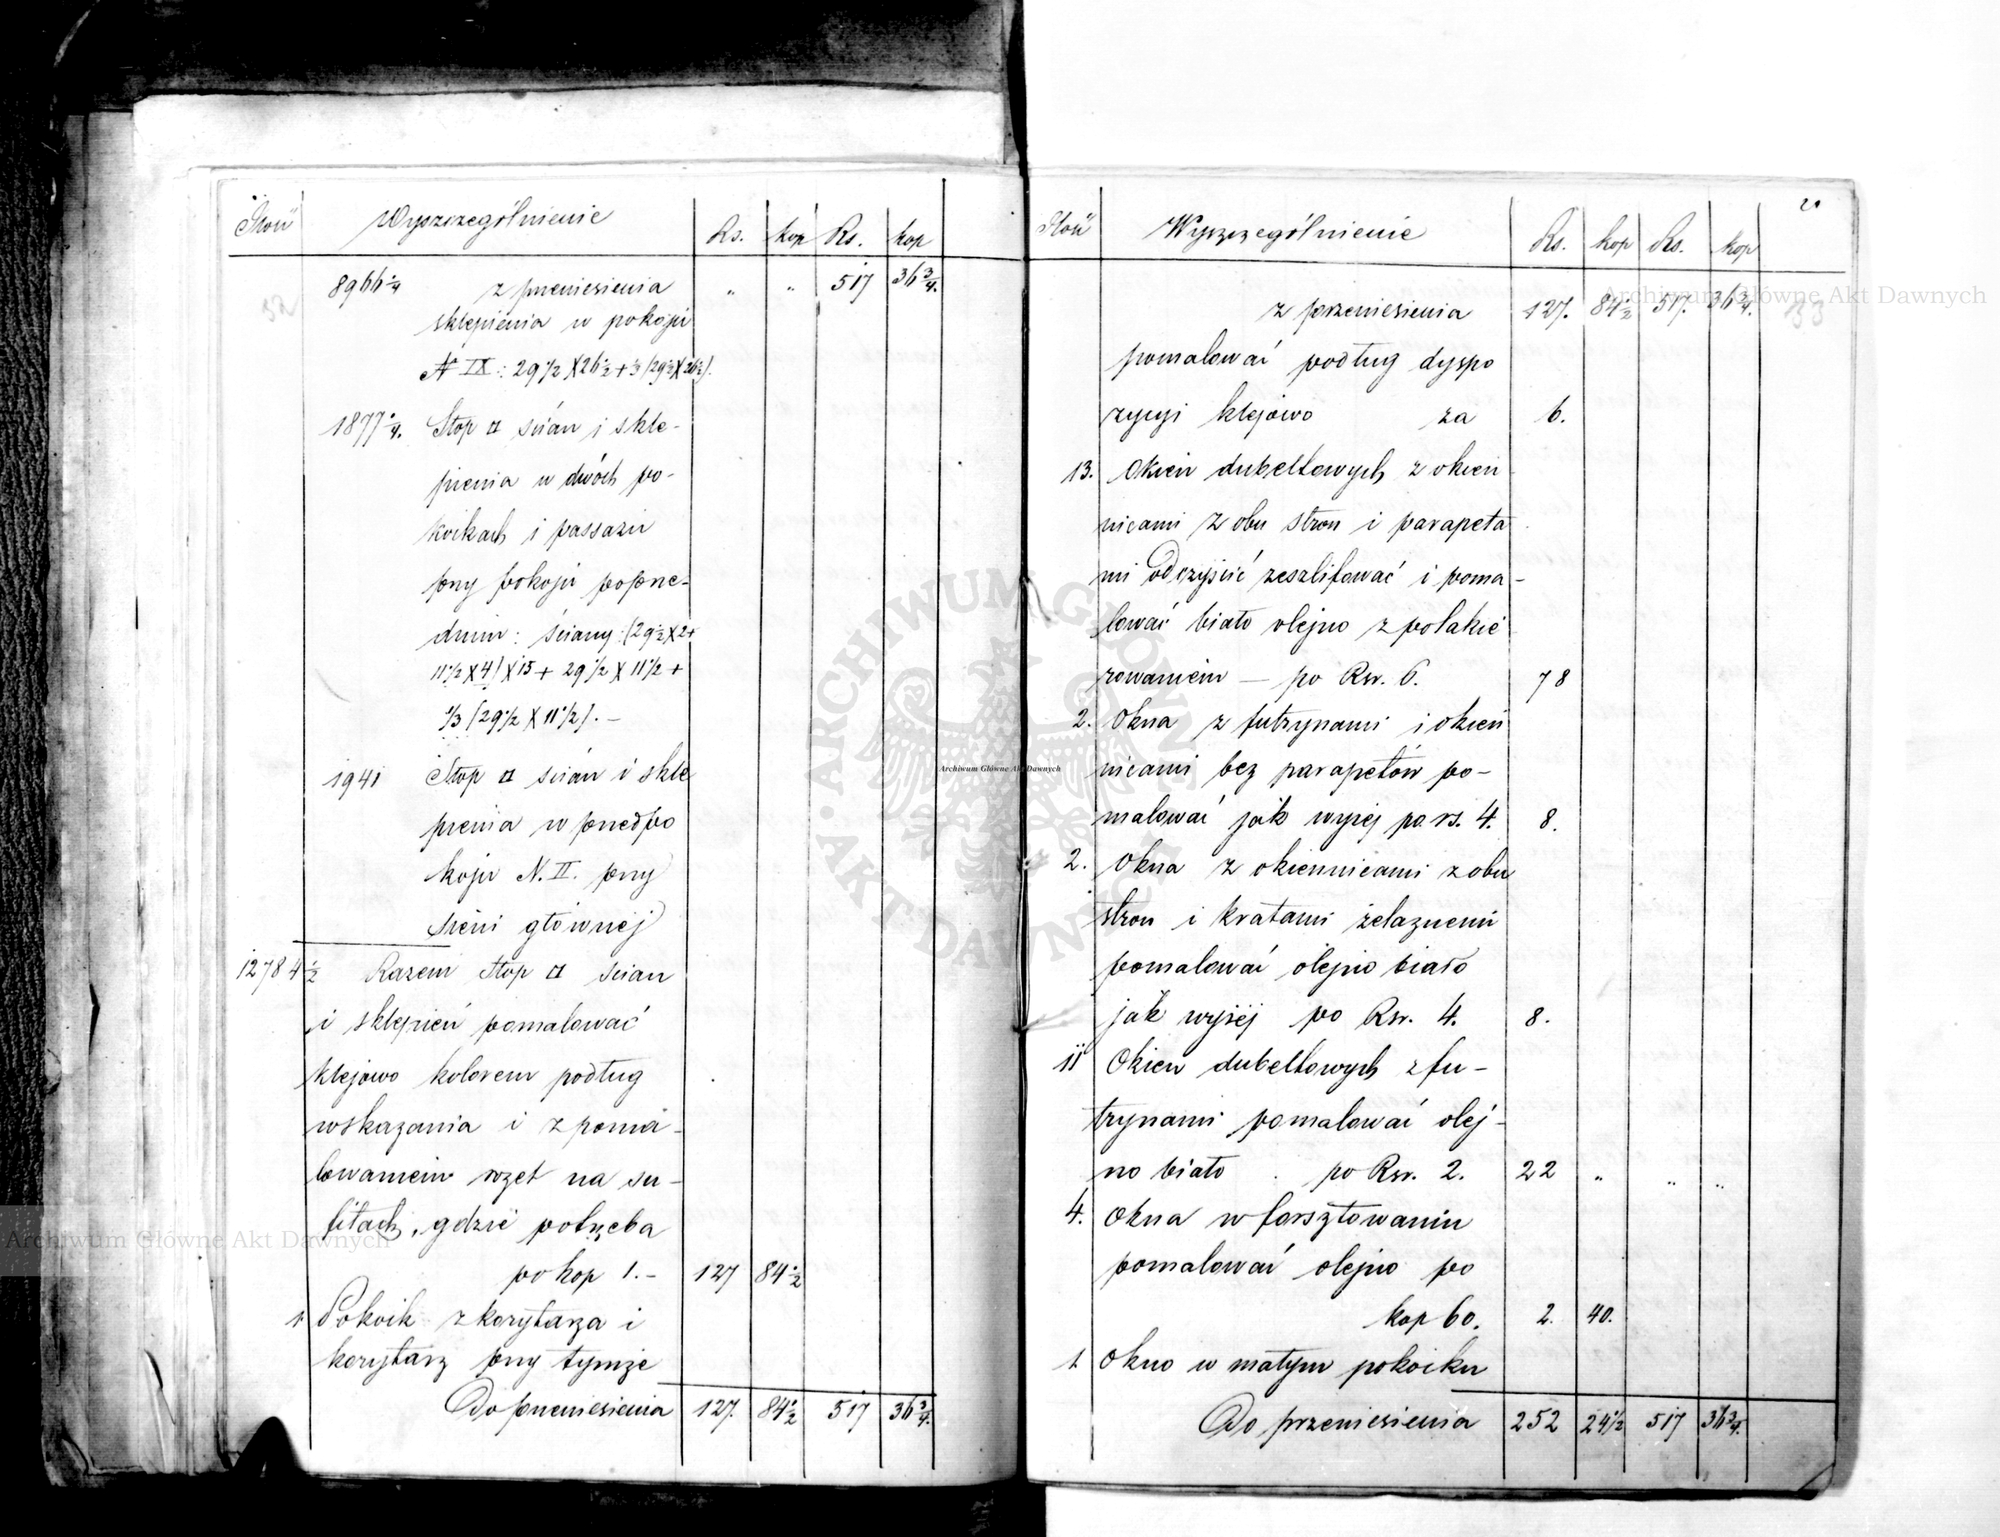 Ilość Wyszczególnienie Rs. kop Rs. kop
8966 1/4 z przeniesienia „ „ 517 36 3/4.
52
sklepienia w pokoju
N IX: 29 1/2 X 26 1/2 + 1/3 (29 1/2 X 26 1/2).
1877 1/4. Stop □ ścian i skle-
pienia w dwóch po-
koikach i passażu
przy pokoju poprze-
dnim: ściany: (29 1/2 X 2+
11 1/2 X 4) X 15 + 29 1/2 X 11 1/2 +
1/3 (29 1/2 X 11 1/2). –
1941 Stop □ ścian i skle
pienia w przedpo
koju N. II. przy
Sieni głównej
12784 1/2 Razem Stop □ scian
i sklepień pomalować
klejowo kolorem podług
wskazania i z poma-
lowaniem rozet na su-
fitach, gdzie potrzeba
po kop 1.- 127 84 1/2
1 Pokoik z korytarza i
korytarz przy tymże
Do przeniesienia 127. 84 1/2 517 36 3/4.
Ilość Wyszczególnienie Rs. kop Rs. kop
z przeniesienia 127. 84 1/2 517. 36 3/4. 53
pomalować podług dyspo
zycyi klejowo za 6.
13. Okien dubeltowych z okien
nicami z obu stron i parapeta
mi odczyścić zeszlifować i poma-
lować biało olejno z polakie
rowaniem — po Rsr. 6. 78
2. Okna z futrynami i okien
nicami bez parapetów po-
malować jak wyżej po rs. 4. 8.
2. Okna z okiennicami z obu
stron i kratami żelaznemi
pomalować olejno biało
jak wyżej po Rsr. 4. 8.
11 Okien dubeltowych z fu-
trynami pomalować olej-
no biało . po Rsr. 2. 22 „ „ „
4. Okna w forsztowaniu
pomalować olejno po
kop 60. 2. 40.
1. Okno w małym pokoiku
Do przeniesienia 252 24 1/2 517 36 3/4.
Archiwum Główne Akt Dawnych
ARCHIWUM GŁÓWNE AKT DAWNYCH
Archiwum Główne Akt Dawnych
Archiwum Główne Akt Dawnych